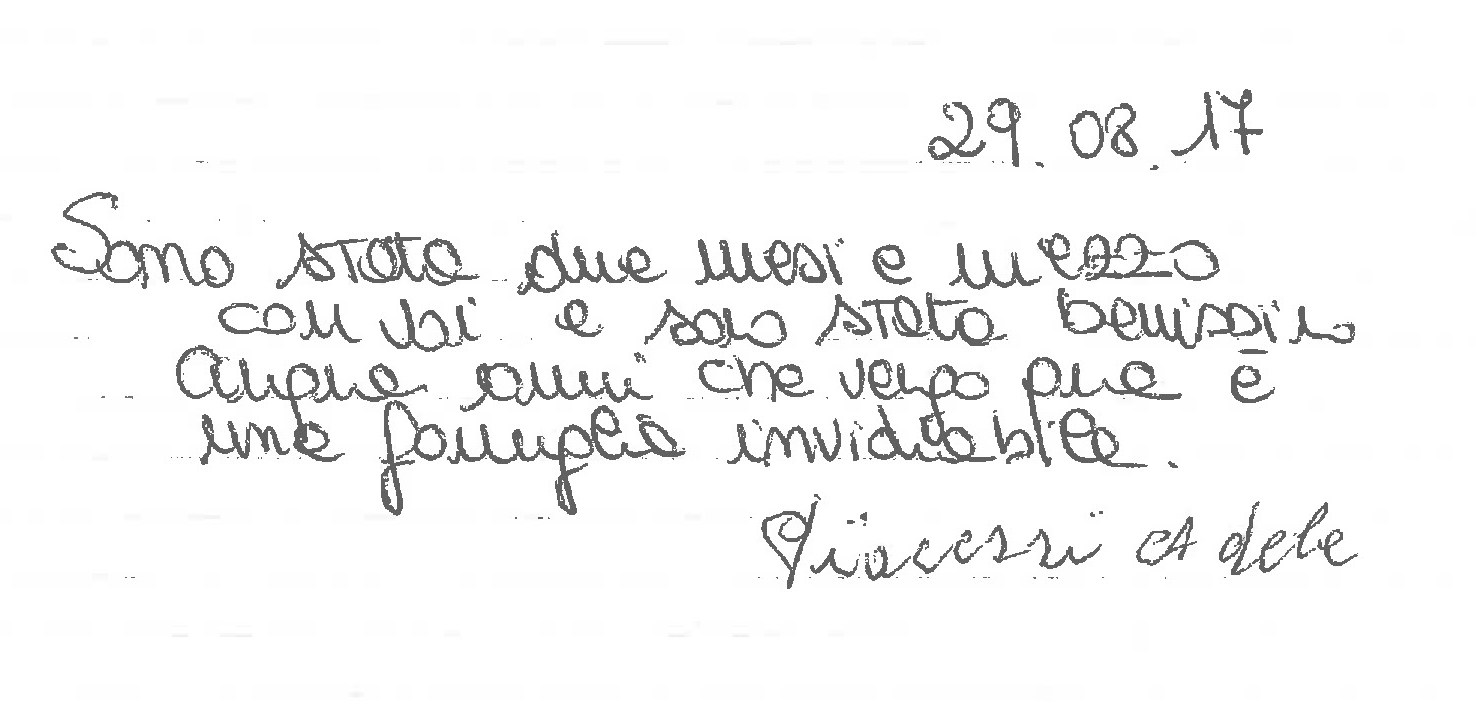 29.08.17
Sono stata due mesi e mezzo
con voi e sono stata benissimo
Cinque anni che vengo qua è
una famiglia invidiabile.
Adele